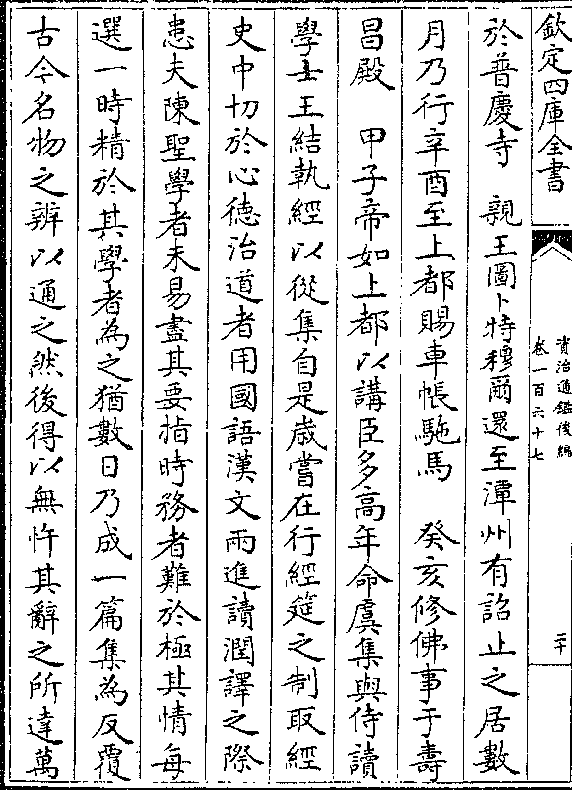 欽定四庫全書
資治通鑑後編
卷一百六十七
二十
於普慶寺　親王圖卜特穆爾還至潭州有詔止之居數
月乃行辛酉至上都賜車帳駞馬　癸亥修佛事于壽
昌殿　甲子帝如上都以講臣多高年命虞集與侍讀
學士王結執經以從集自是歲嘗在行經筵之制取經
史中切於心徳治道者用國語漢文兩進讀潤譯之際
患夫陳聖學者未易盡其要指時務者難於極其情每
選一時精於其學者為之猶數日乃成一篇集為反覆
古今名物之辨以通之然後得以無忤其辭之所達萬